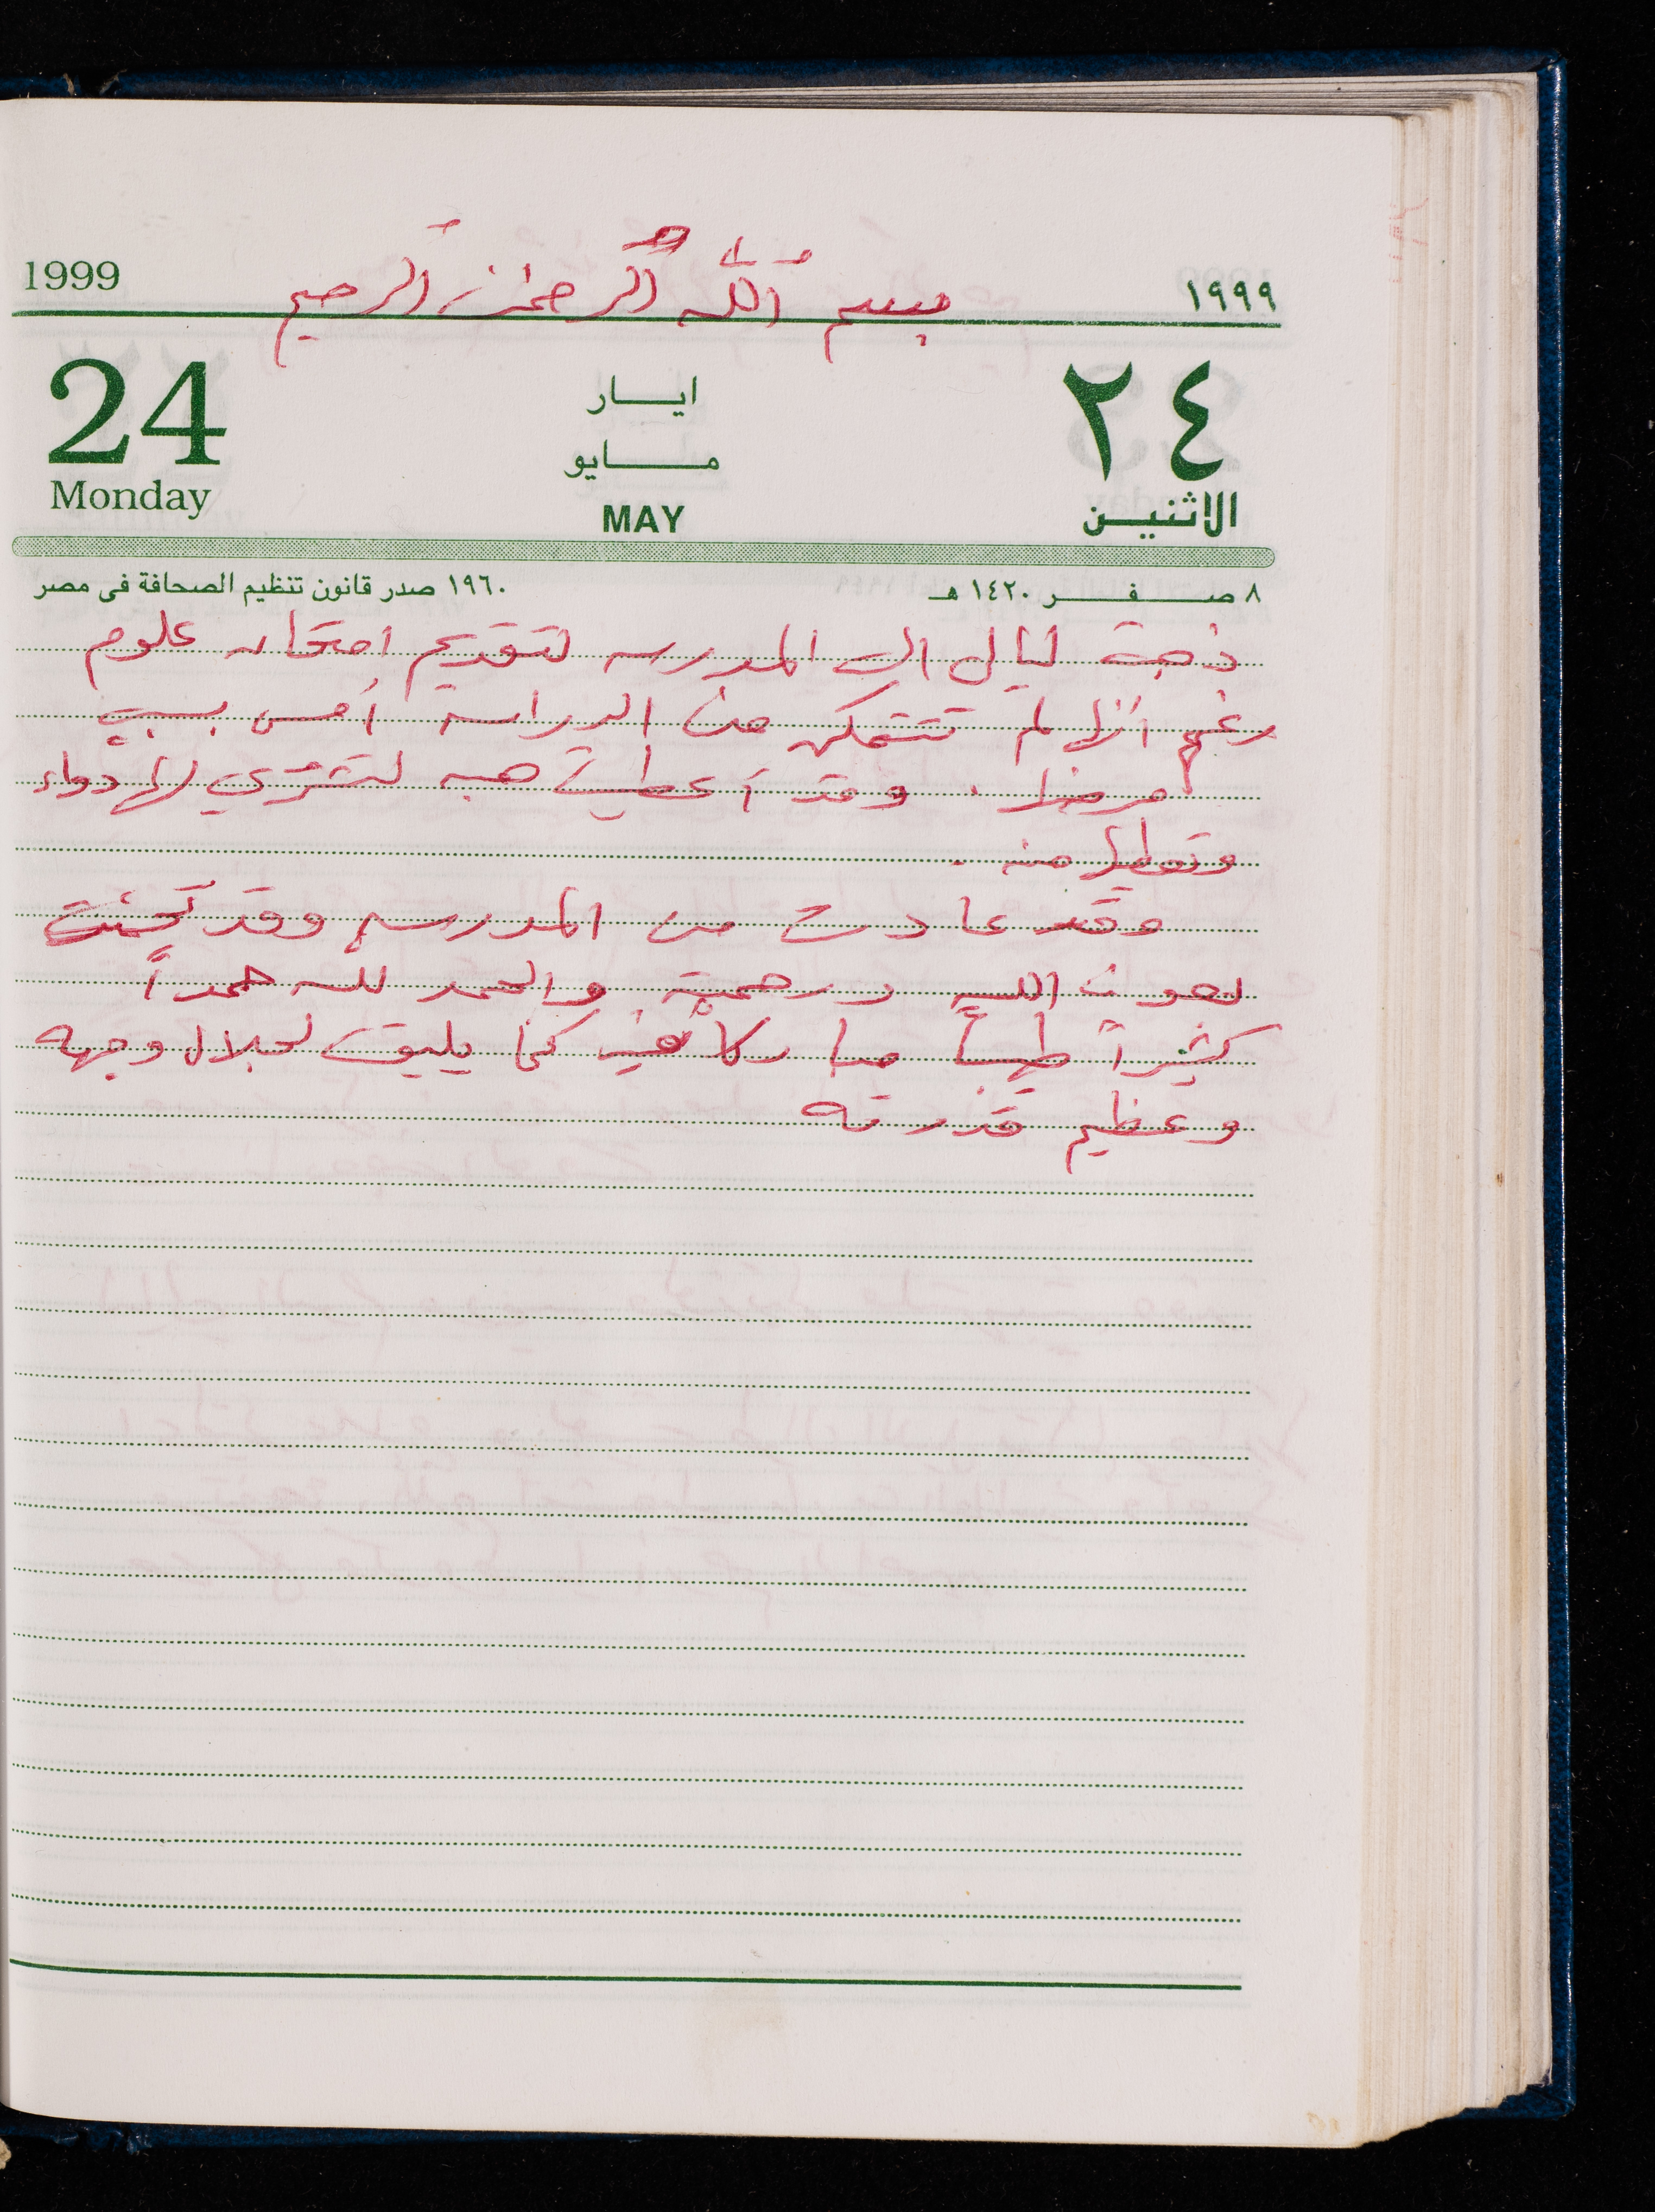 بسم الله الرحمن الرحيم
1999 ١٩٩٩
24 ايار ٢٤
مايو
Monday MAY الاثنين
٨ صفر ١٤٢٠ هـ ١٩٦٠ صدر قانون تنظيم الصحافة فى مصر
ذهبت ليالي الى المدرسه لتقديم امتحان علوم
رغم أنها لم تتمكن من الدراسه أمس بسبب
مرضها . وقد أعطيت هبه لتشتري لها دواء
وتعطيها منه .
وقد عادت من المدرسه وقد تحسنت
بعون الله ورحمته والحمد لله حمداً
كثيراً طيباً مباركا فيه كما يليق لجلال وجهه
وعظيم قدرته